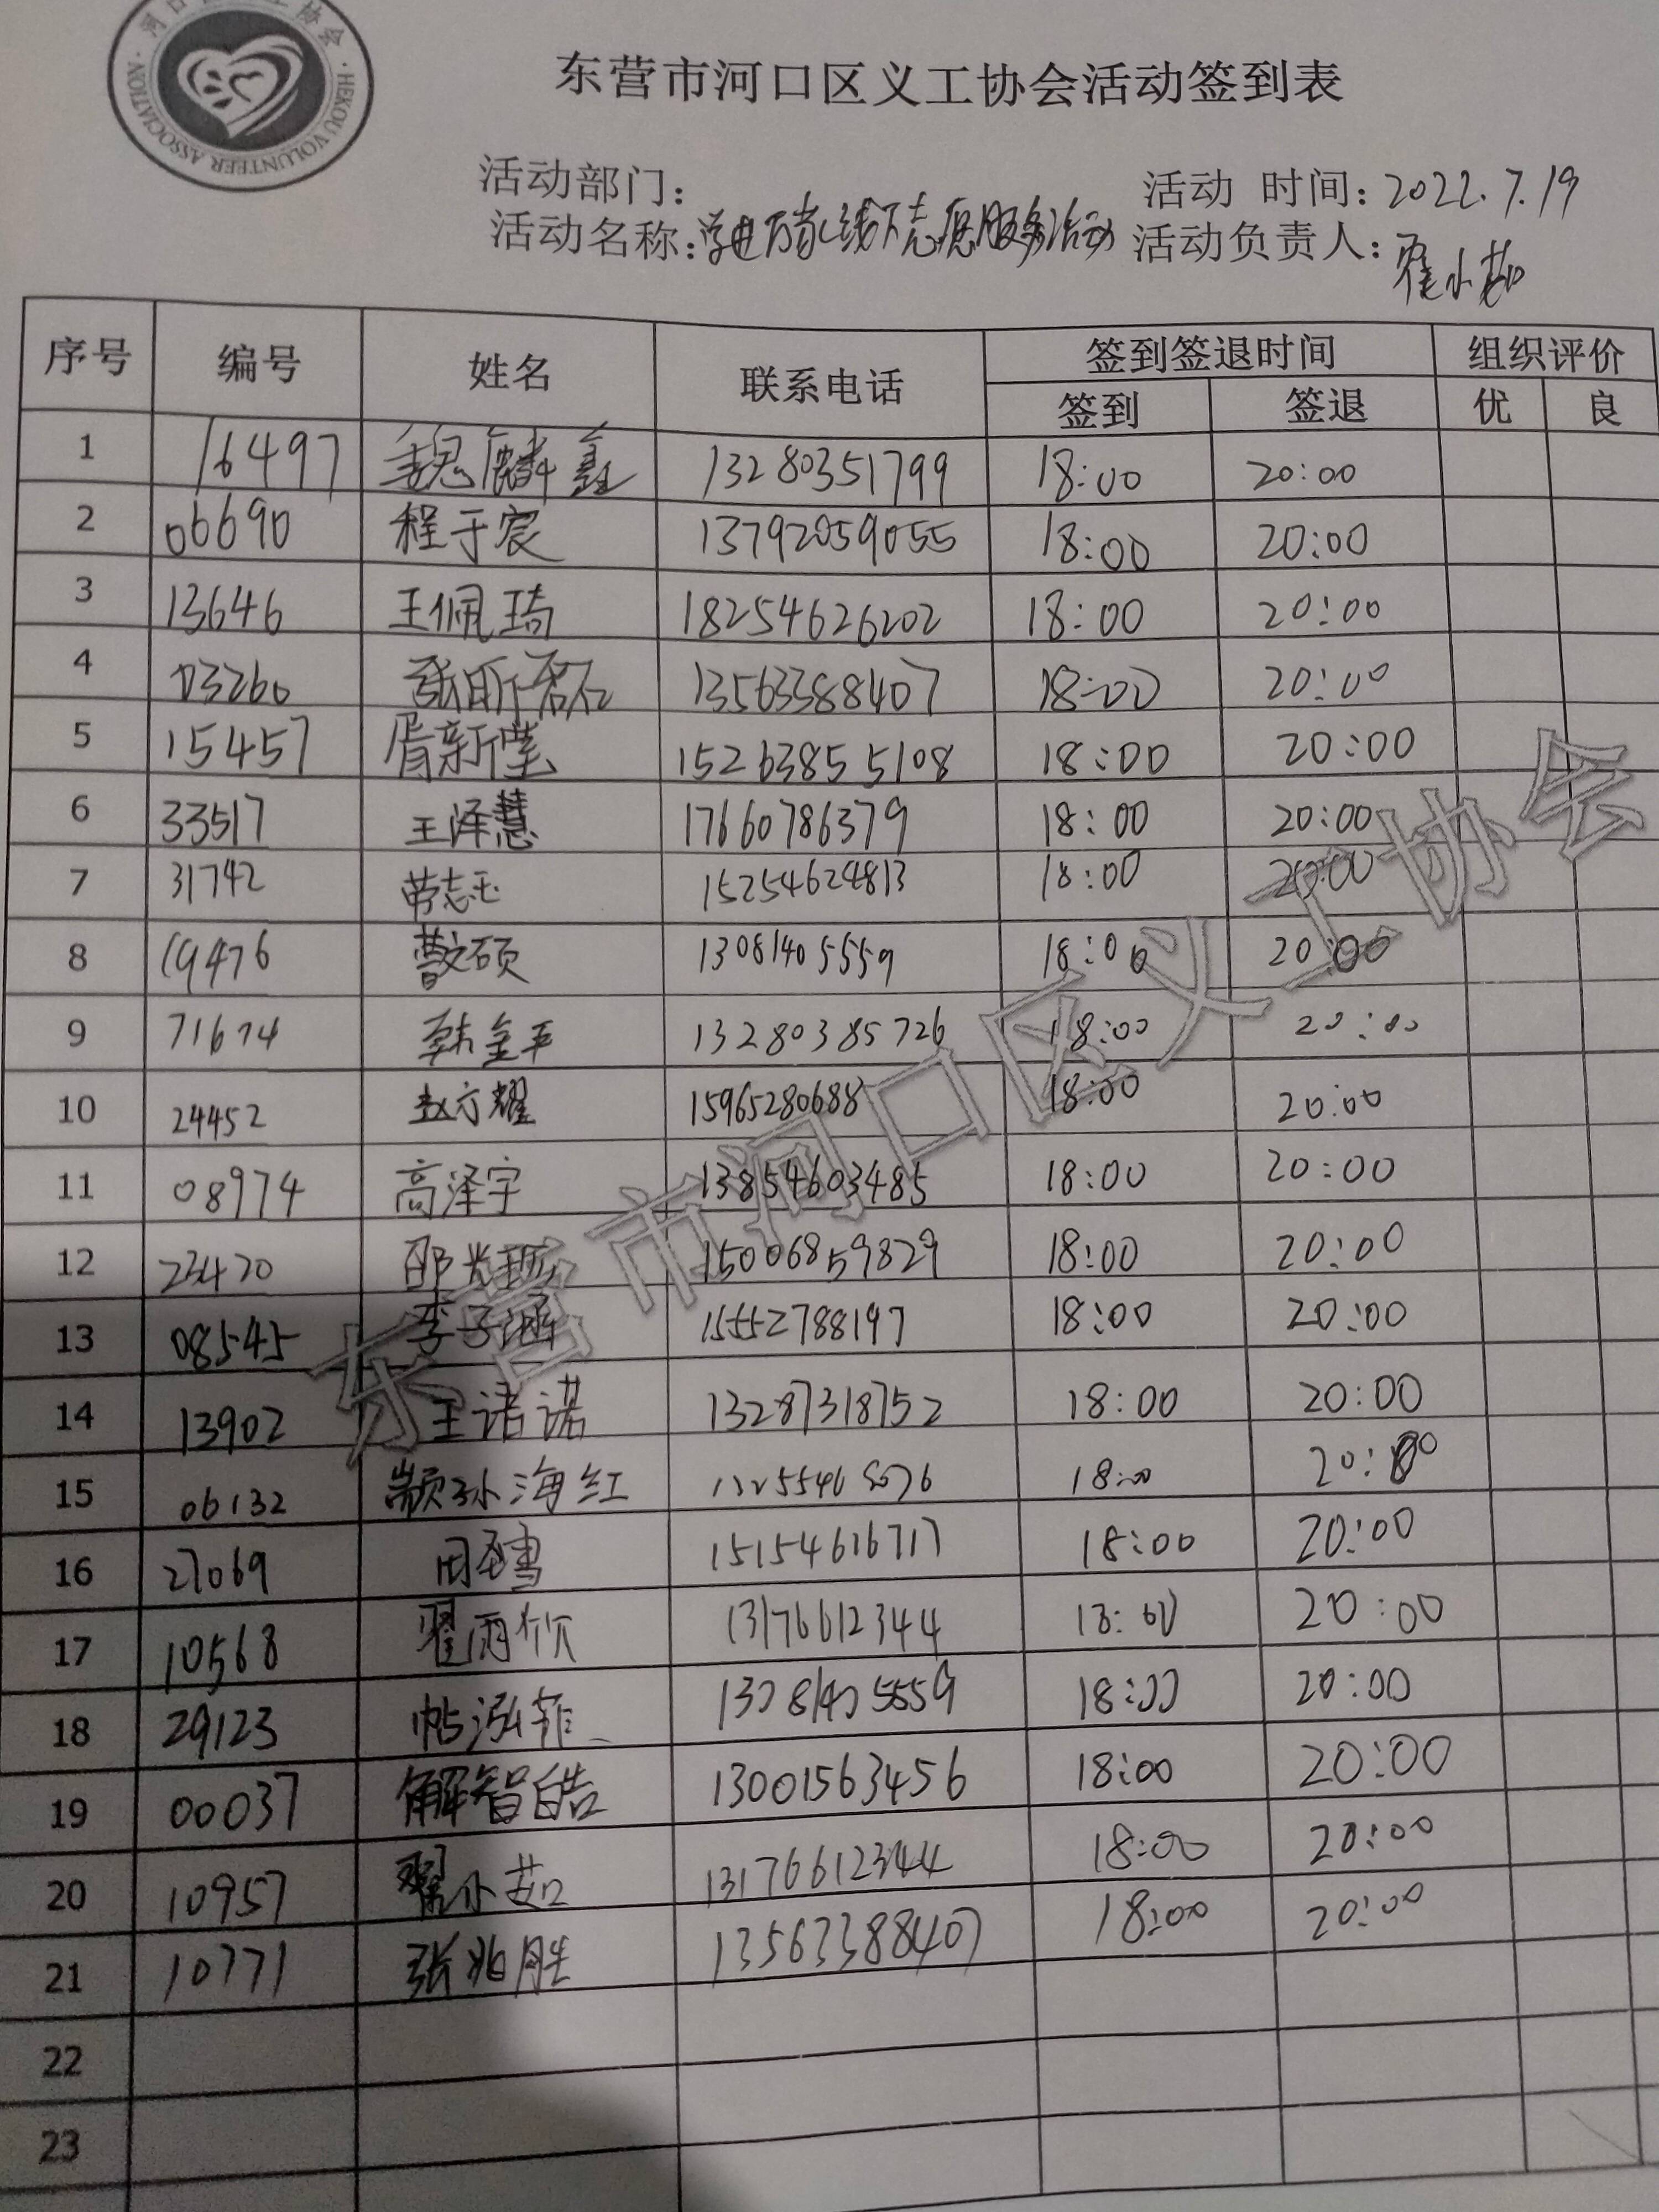 HEKOU VOLUNTEER ASSOCIATION
东营市河口区义工协会活动签到表
活动部门： 活动 时间：2022.7.19
活动名称：学进万家线下志愿服务活动 活动负责人：翟小茹
序号 编号 姓名 联系电话 签到签退时间 组织评价
签到 签退 优 良
1 16497 魏麟鑫 13280351799 18:00 20:00
2 06690 程于宸 13792059055 18:00 20:00
3 13646 王佩琦 18254626202 18:00 20:00
4 03260 张昕若 13563388407 18:00 20:00
5 15457 胥新莹 15263855108 18:00 20:00
6 33517 王泽慧 17660786379 18:00 20:00
7 31742 苟志玉 15254624813 18:00 20:00
8 19476 曹文硕 13081405559 18:00 20:00
9 71674 韩金平 13280385726 18:00 20:00
10 24452 赵方耀 15965280688 18:00 20:00
11 08974 高泽宇 13854603485 18:00 20:00
12 23470 邵光 15006859829 18:00 20:00
13 08545 李子涵 15552788197 18:00 20:00
14 13902 王诺诺 13287318752 18:00 20:00
15 06132 颛孙海红 18:00 20:00
16 27069 田圣雪 15154616717 18:00 20:00
17 10568 翟雨欣 13176612344 18:00 20:00
18 29123 帖泓菲 13081405559 18:00 20:00
19 00037 解智皓 13001563456 18:00 20:00
20 10957 翟小茹 13176612344 18:00 20:00
21 10771 张兆胜 13563388407 18:00 20:00
22
23
东营市河口区义工协会